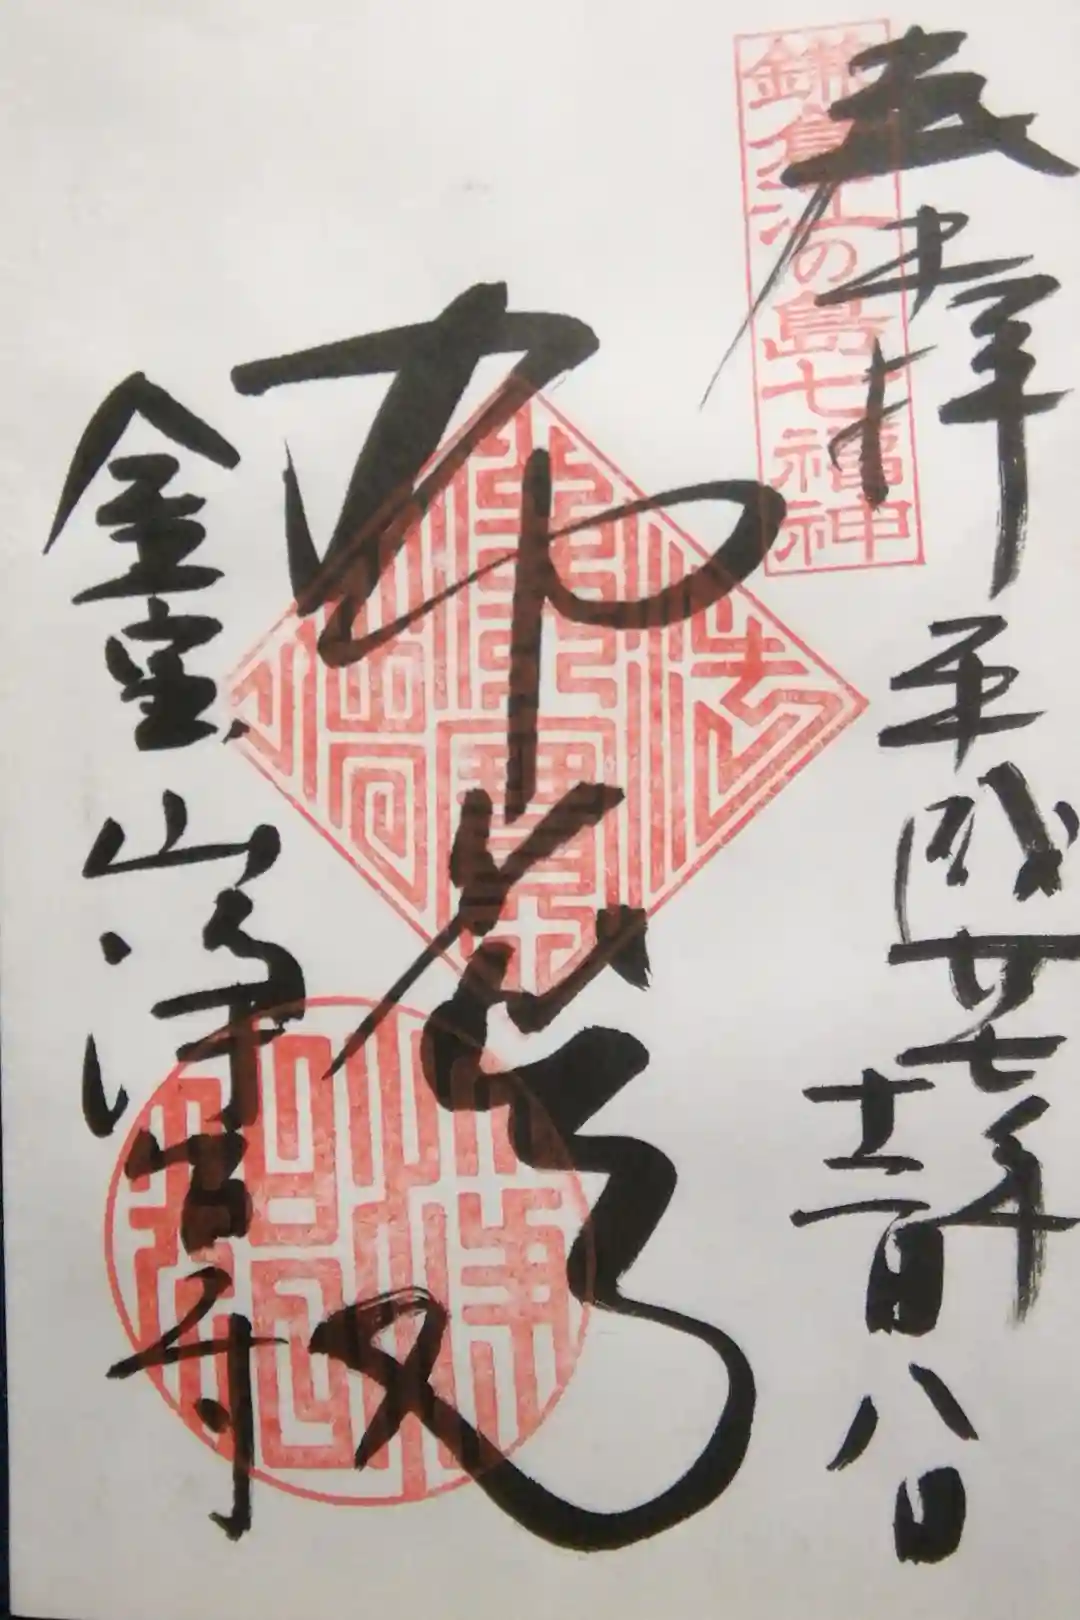 鎌倉江の島七福神
奉拝 平成廿七年
十二月八日
布袋尊
金宝山 浄智寺